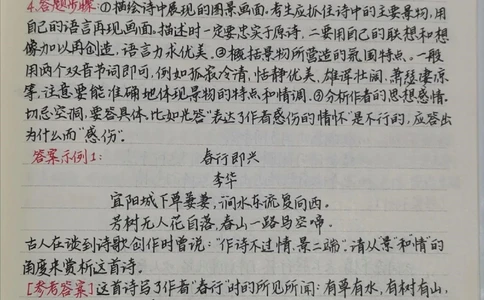 4.答题步骤:①描绘诗中展现的图景画面.考生应抓住诗中的主要景物,用
自己的语言再现画面.描述时一定要忠实于原诗,二要用自己的联想和想
像加以再创造,语言力求优美.②概括景物所营造的氛围特点.一般
用两个双音节词即可,例如孤寂冷清,恬静优美,雄浑壮阔,萧瑟凄凉
等,注意要能准确地体现景物的特点和情调.③分析作者的思想感情.
切忌空洞,要答具体.比如光答"表达了作者感伤的情怀"是不行的,应答出
为什么而"感伤".
答案示例1:春行即兴
李华
宜阳城下草萋萋,涧水东流复向西.
芳树无人花自落,春山一路鸟空啼.
古人在谈到诗歌创作时曾说:"作诗不过情、景二端".请从"景"和"情"的
角度来赏析这首诗.
[参考答案]这首诗写了作者"春行"时的所见所闻:有草有水,有树有山,